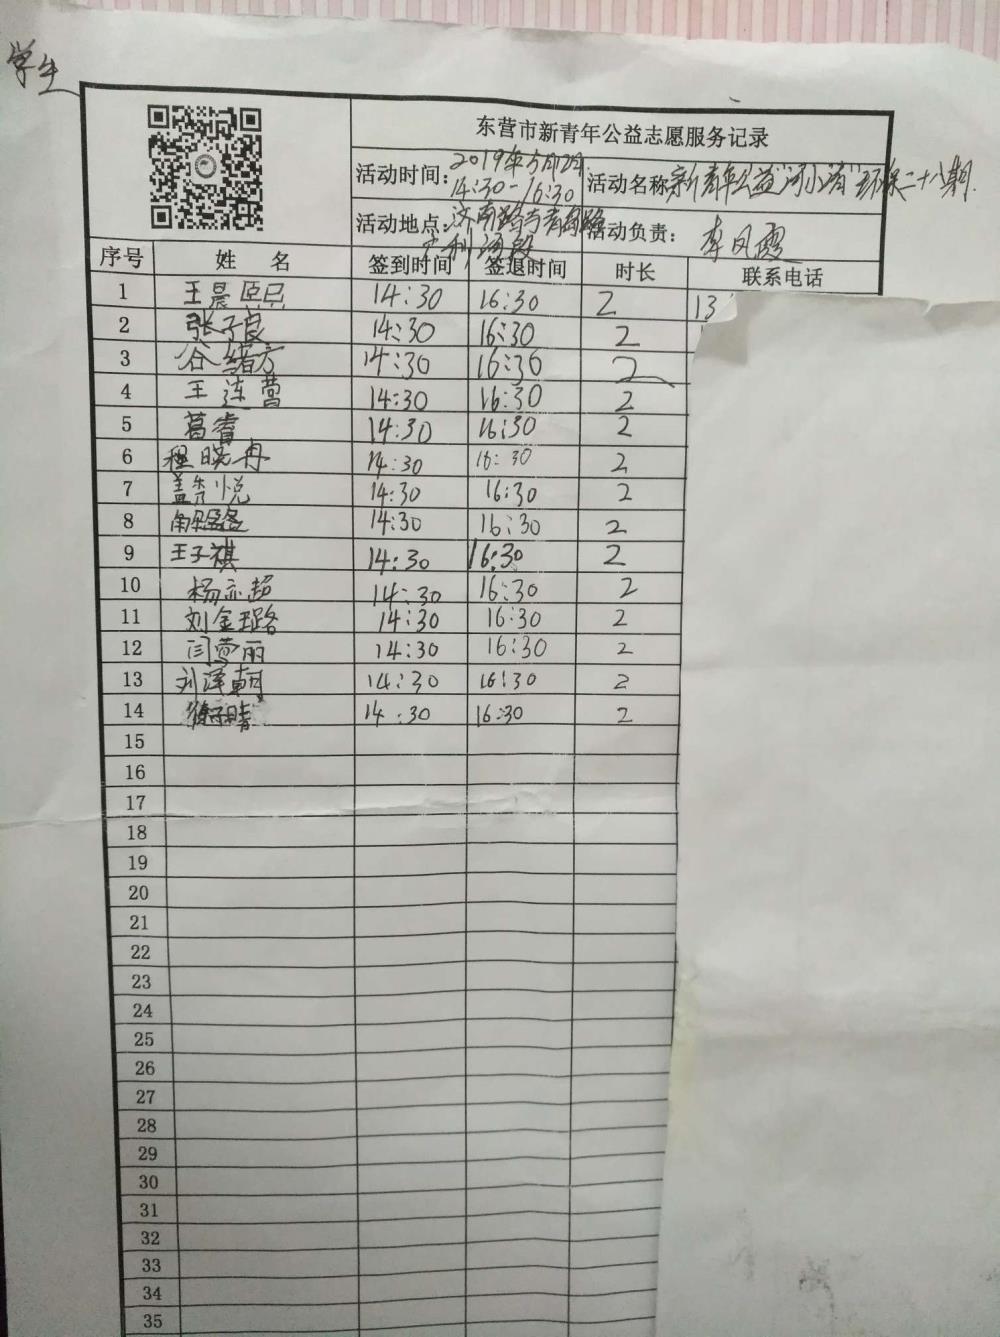 学生
东营市新青年公益志愿服务记录
活动时间: 2019年5月12日
14:30-16:30
活动名称 新青年公益"河小清"环保二十八期.
活动地点: 济南路与青岛路
广利河段
活动负责: 李凤霞
序号 姓 名 签到时间 签退时间 时长 联系电话
1 王晨熙 14:30 16:30 2 13
2 张子良 14:30 16:30 2
3 谷绪方 14:30 16:30 2
4 王连营 14:30 16:30 2
5 葛睿 14:30 16:30 2
6 程晓冉 14:30 16:30 2
7 盖秀悦 14:30 16:30 2
8 14:30 16:30 2
9 王子祺 14:30 16:30 2
10 杨亦超 14:30 16:30 2
11 刘金璐 14:30 16:30 2
12 闫梦丽 14:30 16:30 2
13 刘泽朝 14:30 16:30 2
14 14:30 16:30 2
15
16
17
18
19
20
21
22
23
24
25
26
27
28
29
30
31
32
33
34
35